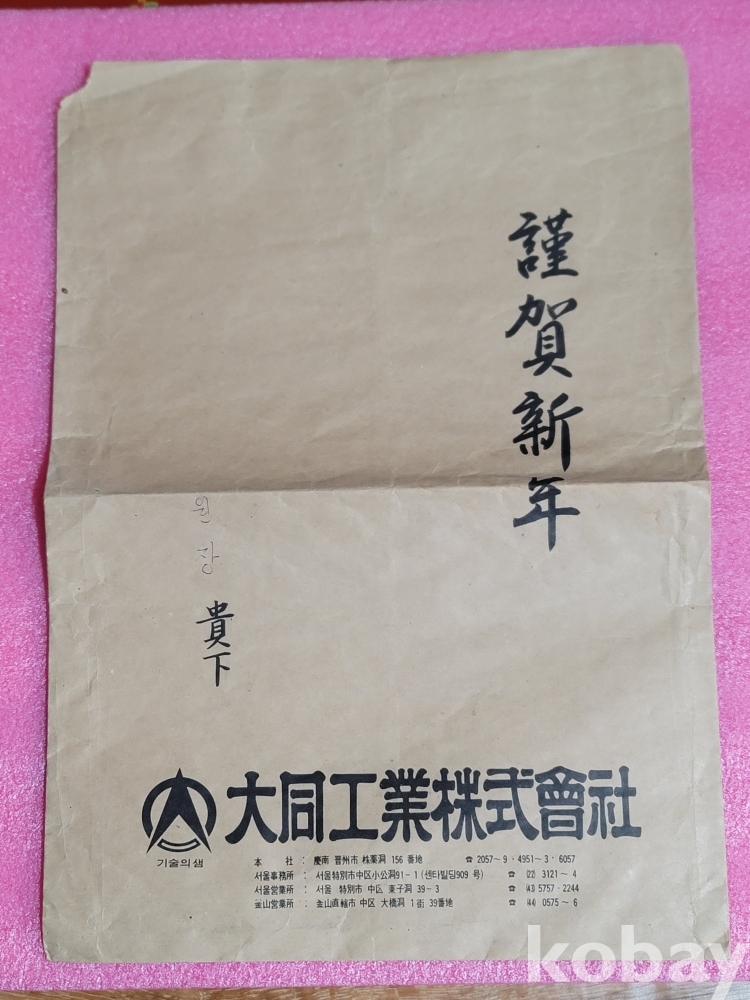 謹賀新年
원장 貴下
大同工業株式會社
기술의샘
本 社 : 慶南 晋州市 株藥洞 156 番地 ☎ 2057~9·4951~3·6057
서울事務所 : 서울特別市中区小公洞91-1 (센타빌딩909 号) ☎ (22) 3121~4
서울営業所 : 서울 特別市 中区 東子洞 39-3 ☎ (43) 5757·2244
釜山営業所 : 釜山直轄市 中区 大橋洞 1街 39番地 ☎ (44) 0575~6
kobay